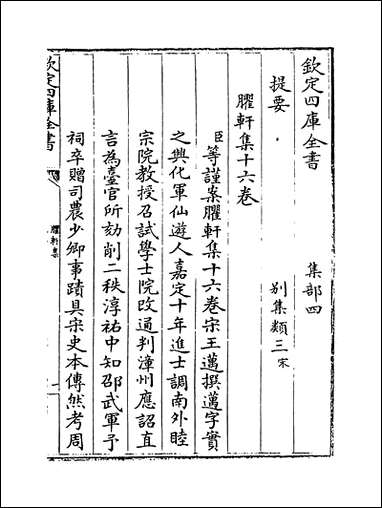 欽定四庫全書 集部四
提要 別集類三宋
臞軒集十六卷
臣等謹案臞軒集十六卷宋王邁撰邁字實
之興化軍仙遊人嘉定十年進士調南外睦
宗院教授召試學士院改通判漳州應詔直
言為臺官所劾削二秩淳祐中知邵武軍予
祠卒贈司農少卿事蹟具宋史本傳然考周
欽定四庫全書
臞軒集
一